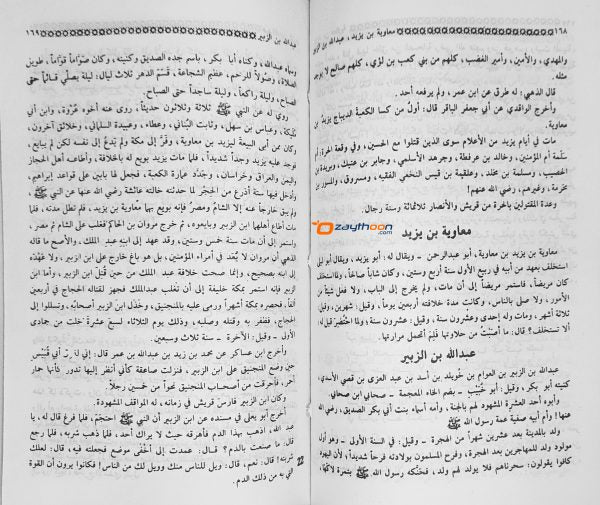 ١٦٨ معاوية بن يزيد، عبدالله بن الزبير
والمهدي، والأمين، وأمير الغضب، كلهم من بني كعب بن لؤي، كلهم صالح لا يوجد
مثله.
قال الذهبي: له طرق عن ابن عمر، ولم يرفعه أحد.
وأخرج الواقدي عن أبي جعفر الباقر قال: أول من كسا الكعبة الديباج يزيد بن
معاوية.
مات في أيام يزيد من الأعلام سوى الذين قتلوا مع الحسين، وفي وقعة الحرة: أم
سلمة أم المؤمنين، وخالد بن عرفطة، وجرهد الأسلمي، وجابر بن عتيك، وبريدة بن
الحصيب، ومسلمة بن مخلد، وعلقمة بن قيس النخعي الفقيه، ومسروق، والمسور بن
مخرمة، وغيرهم، رضي الله عنهم!
وعدة المقتولين بالحرة من قريش والأنصار ثلاثمائة وستة رجال.
معاوية بن يزيد
معاوية بن يزيد بن معاوية، أبو عبدالرحمن - ويقال له: أبو يزيد، ويقال أبو ليلى
استخلف بعهد من أبيه في ربيع الأول سنة أربع وستين، وكان شاباً صالحاً، ولما استخلف
كان مريضاً، فاستمر مريضاً إلى أن مات، ولم يخرج إلى الباب، ولا فعل شيئاً من
الأمور، ولا صلى بالناس، وكانت مدة خلافته أربعين يوماً، وقيل: شهرين، وقيل:
ثلاثة أشهر، ومات وله إحدى وعشرون سنة، وقيل: عشرون سنة، ولما احتضر قيل له:
ألا تستخلف؟ قال: ما أصبت من حلاوتها فلم أتحمل مرارتها.
عبدالله بن الزبير
عبد الله بن الزبير بن العوام بن خويلد بن أسد بن عبد العزى بن قصي الأسدي،
كنيته أبو بكر، وقيل: أبو خبيب - بضم الخاء المعجمة - صحابي ابن صحابي.
وأبوه أحد العشرة المشهود لهم بالجنة، وأمه أسماء بنت أبي بكر الصديق، رضي الله
عنها! وأم أبيه صفية عمة رسول الله ﷺ
ولد بالمدينة بعد عشرين شهراً من الهجرة - وقيل: في السنة الأولى - وهو أول
مولود ولد للمهاجرين بعد الهجرة، وفرح المسلمون بولادته فرحاً شديداً؛ لأن اليهود
كانوا يقولون: سحرناهم فلا يولد لهم ولد، فحنكه رسول الله ﷺ بتمرة لاكها،
عبدالله بن الزبير ١٦٩
وسماه عبدالله، وكناه أبا بكر، باسم جده الصديق وكنيته، وكان صواماً قواماً، طويل
الصلاة، وصولاً للرحم، عظيم الشجاعة، قسم الدهر ثلاث ليال: ليلة يصلي قائماً حتى
الصباح، وليلة راكعاً، وليلة ساجداً حتى الصباح.
روي له عن النبي ﷺ ثلاثة وثلاثون حديثاً، روى عنه أخوه عروة، وابن أبي
مليكة، وعباس بن سهل، وثابت البناني، وعطاء، وعبيدة السلماني، وخلائق آخرون.
وكان ممن أبى البيعة ليزيد بن معاوية، وفر إلى مكة ولم يدع إلى نفسه لكن لم يبايع،
فوجد عليه يزيد وجداً شديداً، فلما مات يزيد بويع له بالخلافة، وأطاعه أهل الحجاز
واليمن والعراق وخراسان، وجدد عمارة الكعبة، فجعل لها بابين على قواعد إبراهيم،
وأدخل فيها ستة أذرع من الحجر لما حدثته خالته عائشة رضي الله عنها عن النبي ﷺ،
ولم يبق خارجاً عنه إلا الشام ومصر فإنه بويع بهما معاوية بن يزيد، فلم تطل مدته، فلما
مات أطاع أهلهما ابن الزبير وبايعوه، ثم خرج مروان بن الحاكم فغلب على الشام ثم مصر،
واستمر إلى أن مات سنة خمس وستين، وقد عهد إلى ابنه عبد الملك، والأصح ما قاله
الذهبي أن مروان لا يعد في أمراء المؤمنين، بل هو باغ خارج على ابن الزبير، ولا عهده
إلى ابنه بصحيح، وإنما صحت خلافة عبد الملك من حين قتل ابن الزبير، وأما ابن الزبير
فإنه استمر بمكة خليفة إلى أن تغلب عبدالملك فجهز لقتاله الحجاج في أربعين
ألفاً، فحصره بمكة أشهراً ورمى عليه بالمنجنيق، وخذل ابن الزبير أصحابه، وتسللوا إلى
الحجاج، فظفر به وقتله وصلبه، وذلك يوم الثلاثاء، لسبع عشرة خلت من جمادى
الأول - وقيل: الآخرة - سنة ثلاث وسبعين.
وأخرج ابن عساكر عن محمد بن زيد بن عبدالله بن عمر قال: إني لفوق أبي قبيس
حين وضع المنجنيق على ابن الزبير، فنزلت صاعقة كأني أنظر إليها تدور كأنها حمار
أحمر، فأحرقت من أصحاب المنجنيق نحواً من خمسين رجلاً.
وكان ابن الزبير فارس قريش في زمانه، له المواقف المشهودة.
أخرج أبو يعلى في مسنده عن ابن الزبير أن النبي ﷺ احتجم، فلما فرغ قال له: يا
عبد الله، اذهب بهذا الدم فأهرقه حيث لا يراك أحد، فلما ذهب شربه، فلما رجع
قال: ما صنعت بالدم؟ قال: عمدت إلى أخفى موضع فجعلته فيه، قال: لعلك
شربته! قال: نعم، قال: ويل للناس منك وويل لك من الناس! فكانوا يرون أن القوة
التي به من ذلك الدم.
Ozaythoon
.com